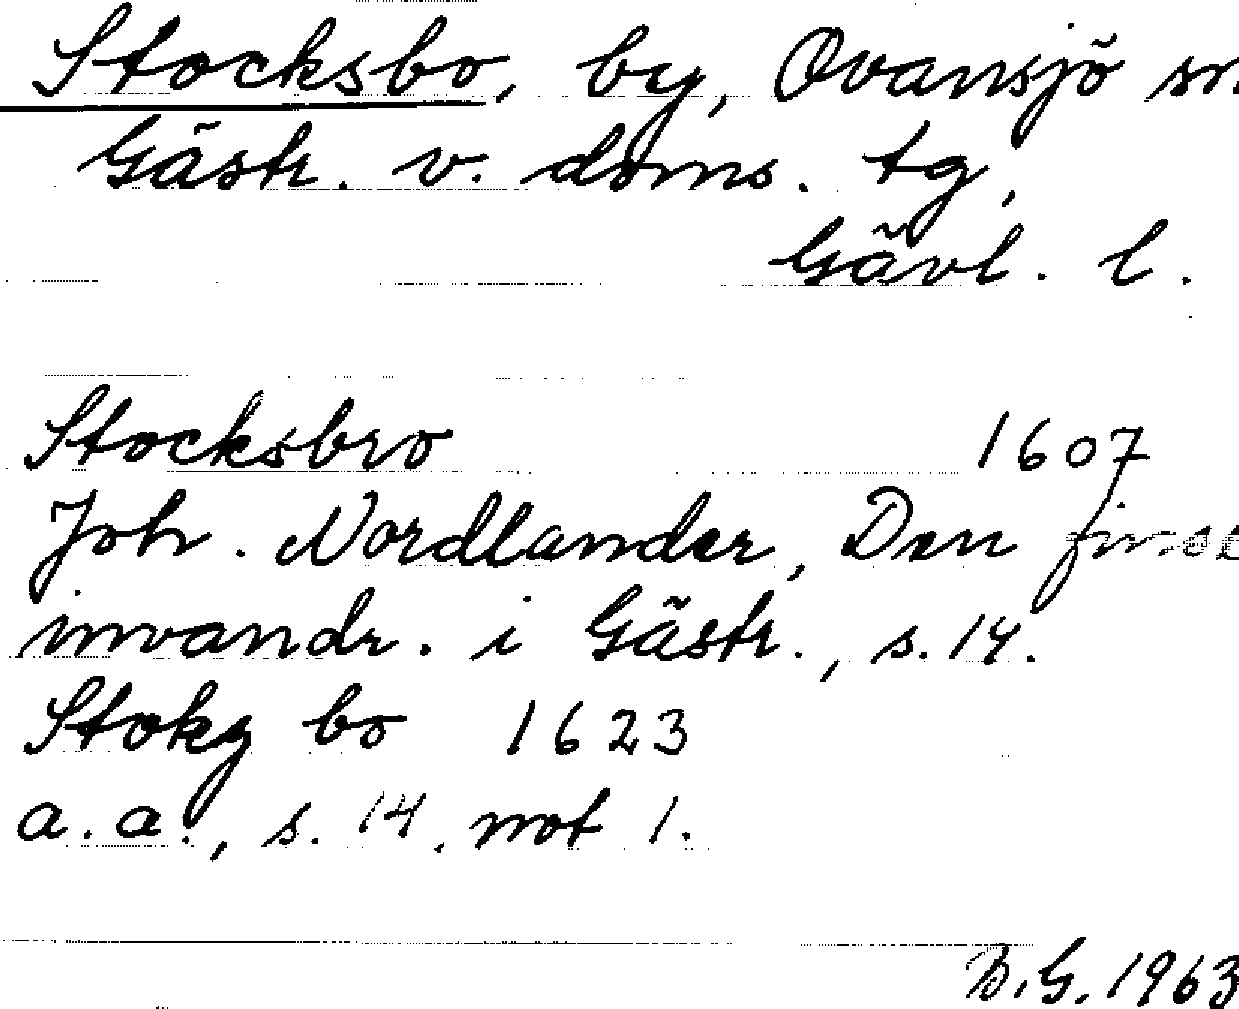 Stocksbo, by, Ovansjö sn
Gästr. v. doms. tg,
Gävl. l.
Stocksbro 1607
Joh. Nordlander, Den finska
invandr. i Gästr., s. 14.
Stokz bo 1623
a. a., s. 14, not 1.
B.G. 1963